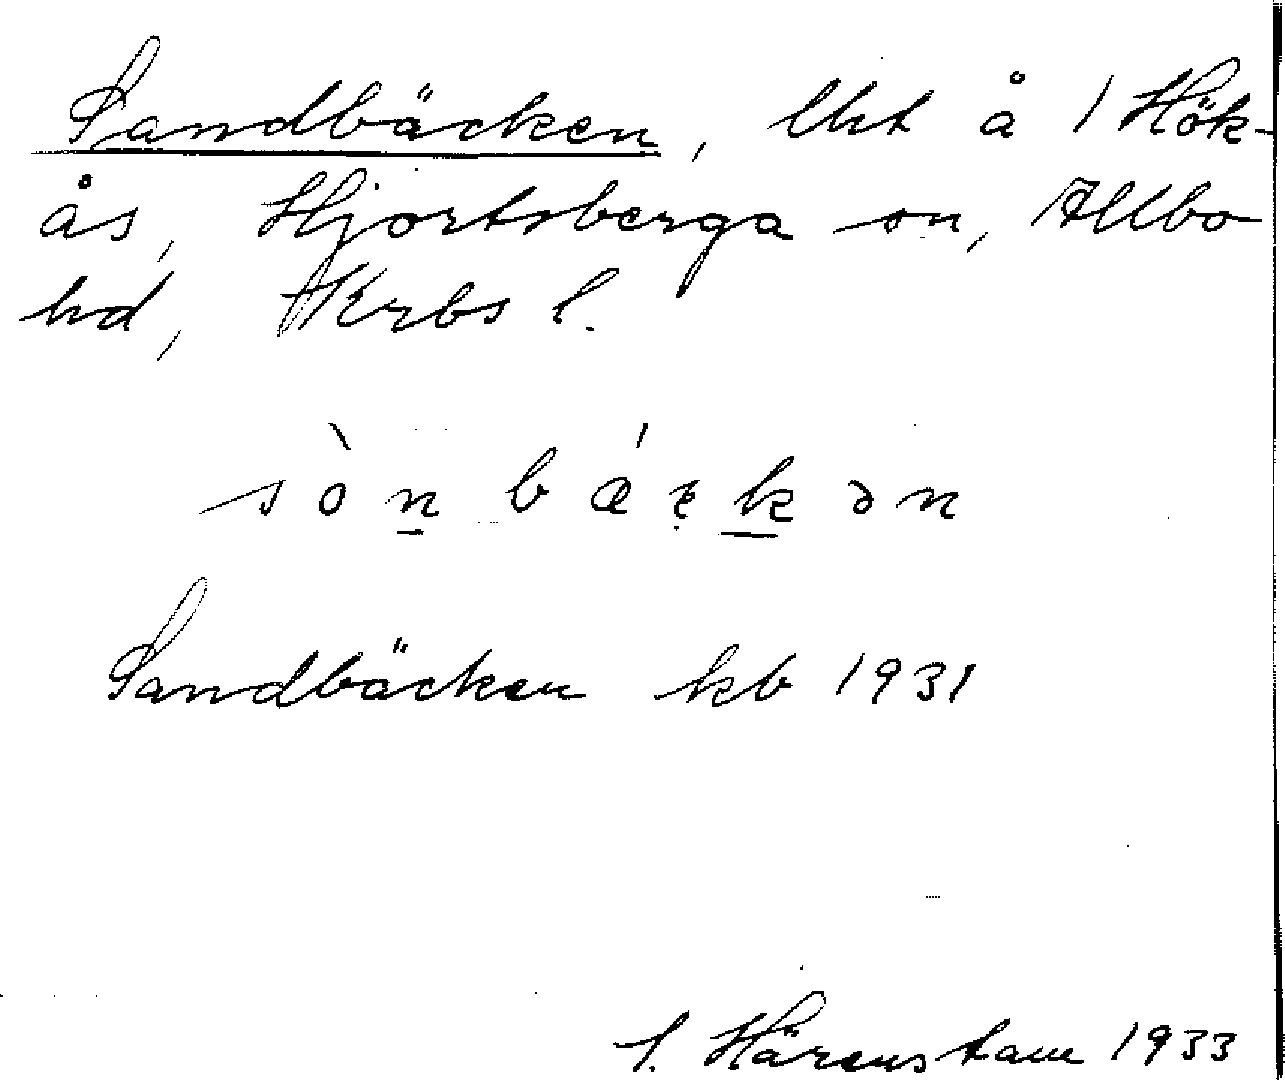 Sandbäcken, lht å 1 Hök-
ås, Hjortsberga sn, Allbo
hd, Krbs l.
sòn bǽckən
Sandbäcken kb 1931
S. Härenstam 1933